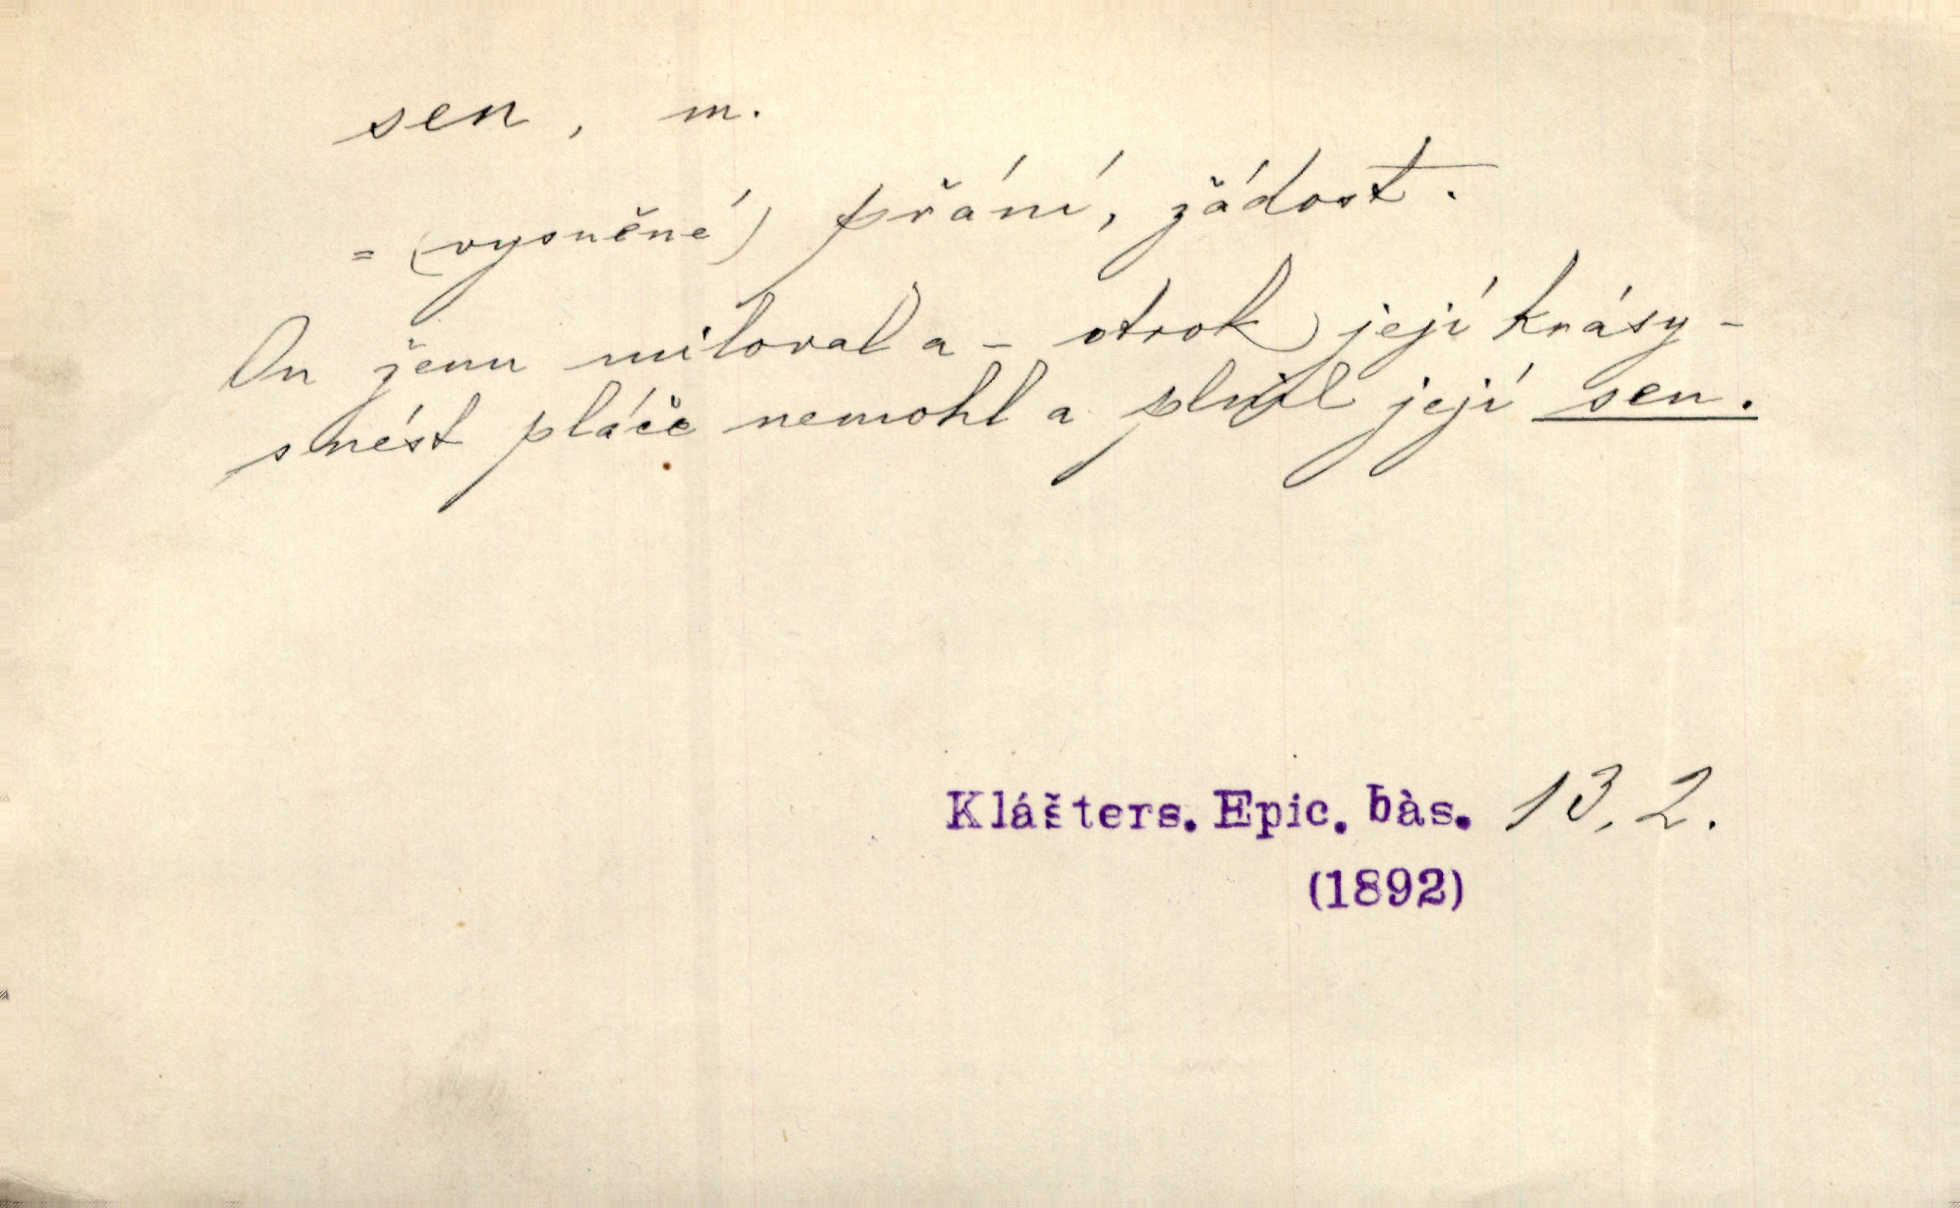 sen, m.
= (vysněné) přání, žádost.
On ženu miloval a – otrok její krásy –
snést pláče nemohl a plnil její sen.
Klášters. Epic. bàs. 13, 2.
(1892)